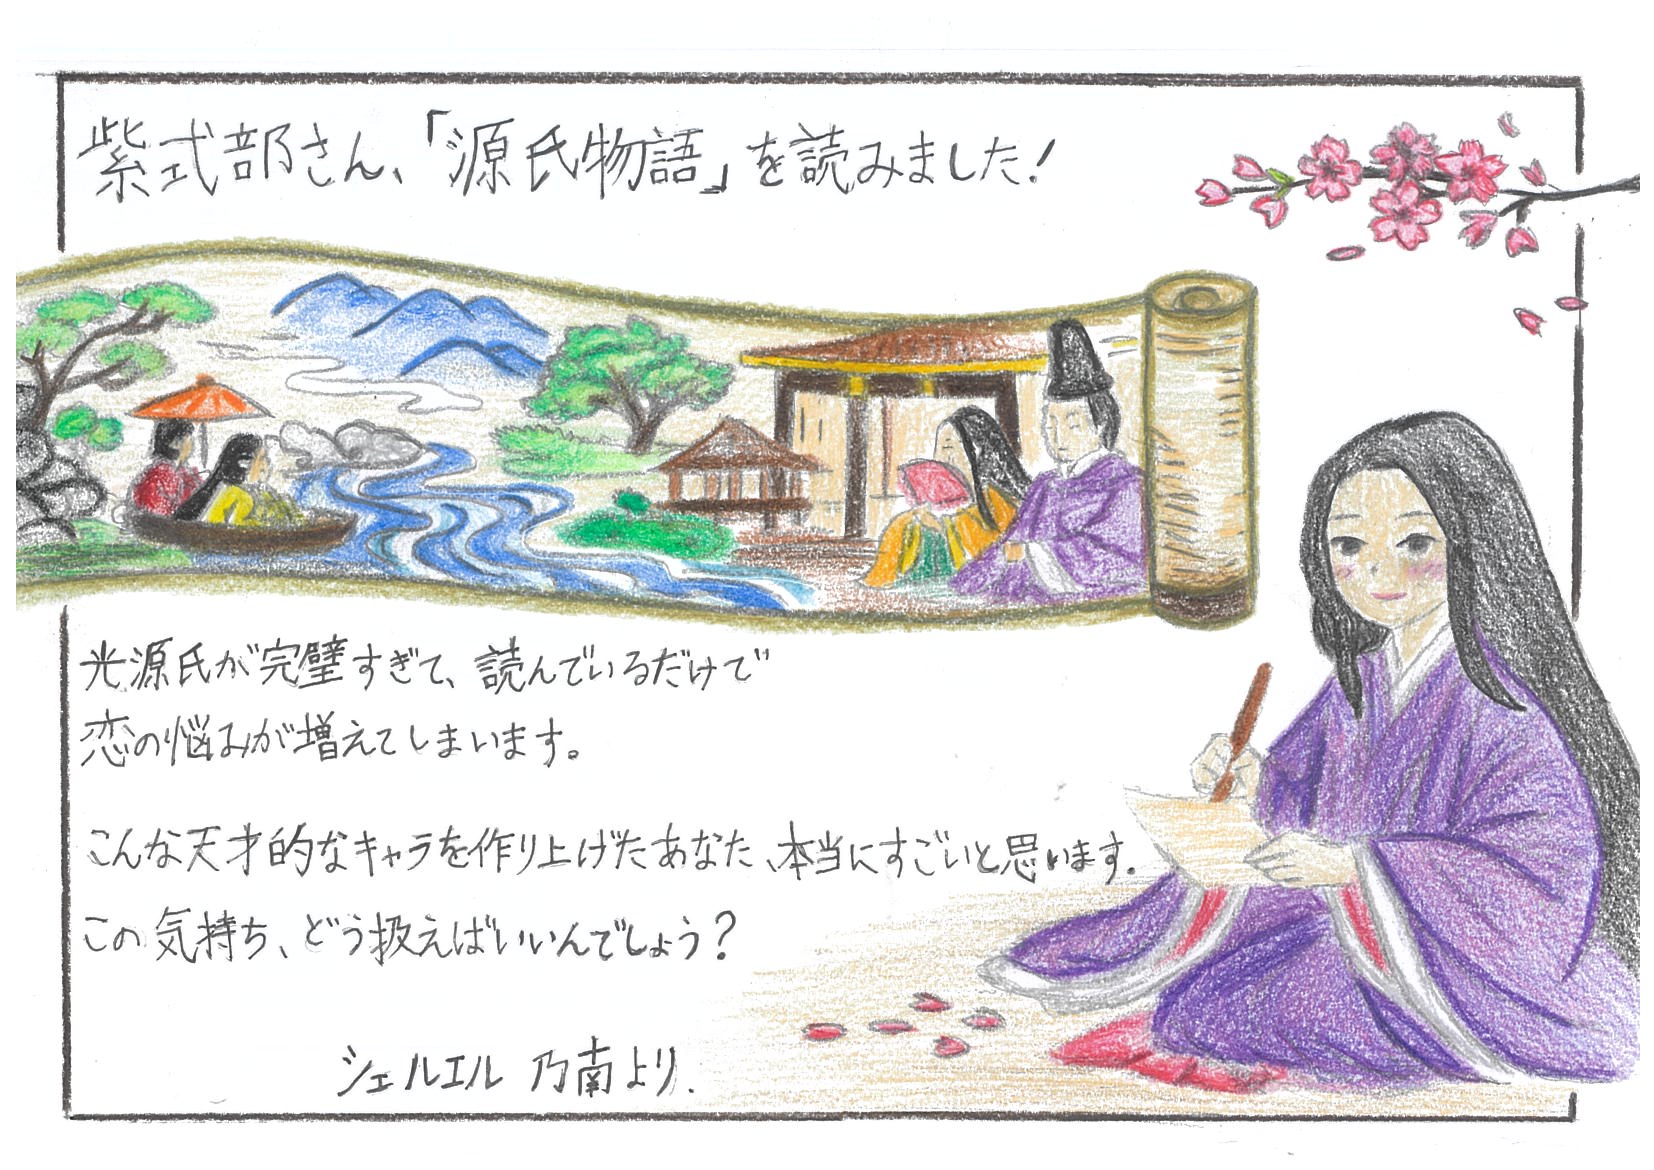 紫式部さん、「源氏物語」を読みました!
光源氏が完璧すぎて、読んでいるだけで
恋の悩みが増えてしまいます。
こんな天才的なキャラを作り上げたあなた、本当にすごいと思います.
この気持ち、どう扱えばいいんでしょう?
シェルエル 乃南より.